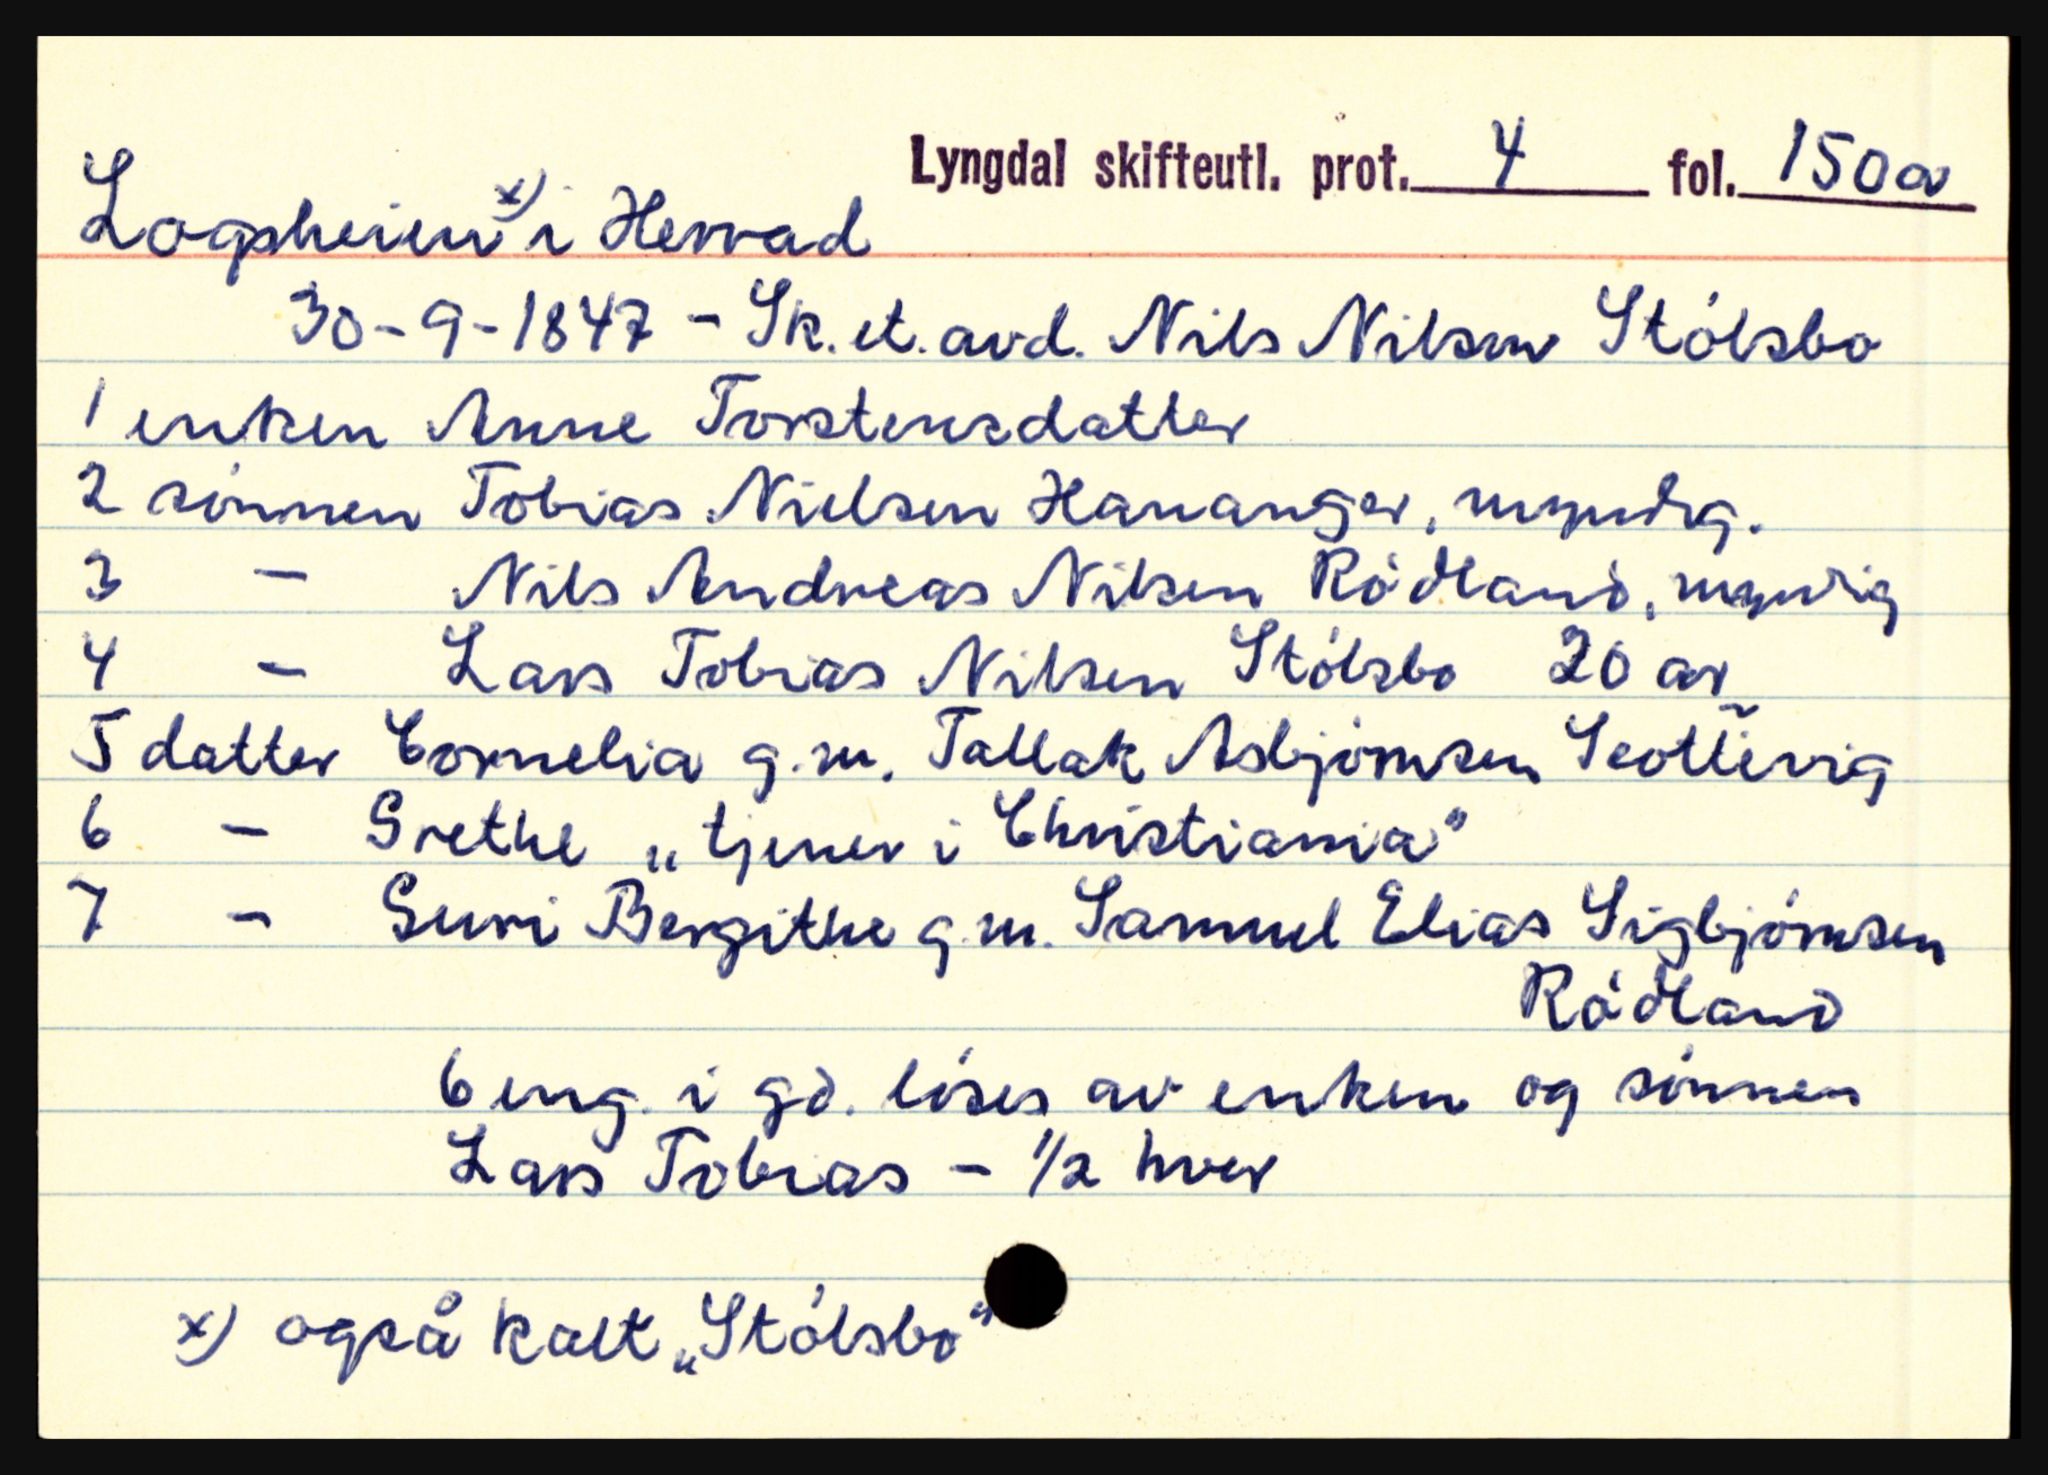 Lyngdal skifteutl. prot. 4 fol. 150a
Logsheien x) i Herrad
30-9-1847 - Sk. et. avd. Nils Nilsen Stólsbo
1 enken Anne Torstensdatter
2 sónnen Tobias Nielsen Hananger, myndig.
3 - Nils Andreas Nilsen Ródland, myndig
4 - Lars Tobias Nilsen Stólsbo 20 ar
5 datter Cornelia g.m. Tallak Asbjórnsen
6 - Grethe „tjener i Christiania"
7 - Guri Bergithe g.m. Samuel Elias Sigbjórnsen
Ródland
6 eng. i gd. lóses av enken og sónnen
Lars Tobias - 1/2 hver
x) også kalt „Stólsbo"